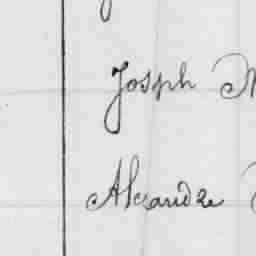 Joseph
Alexandre